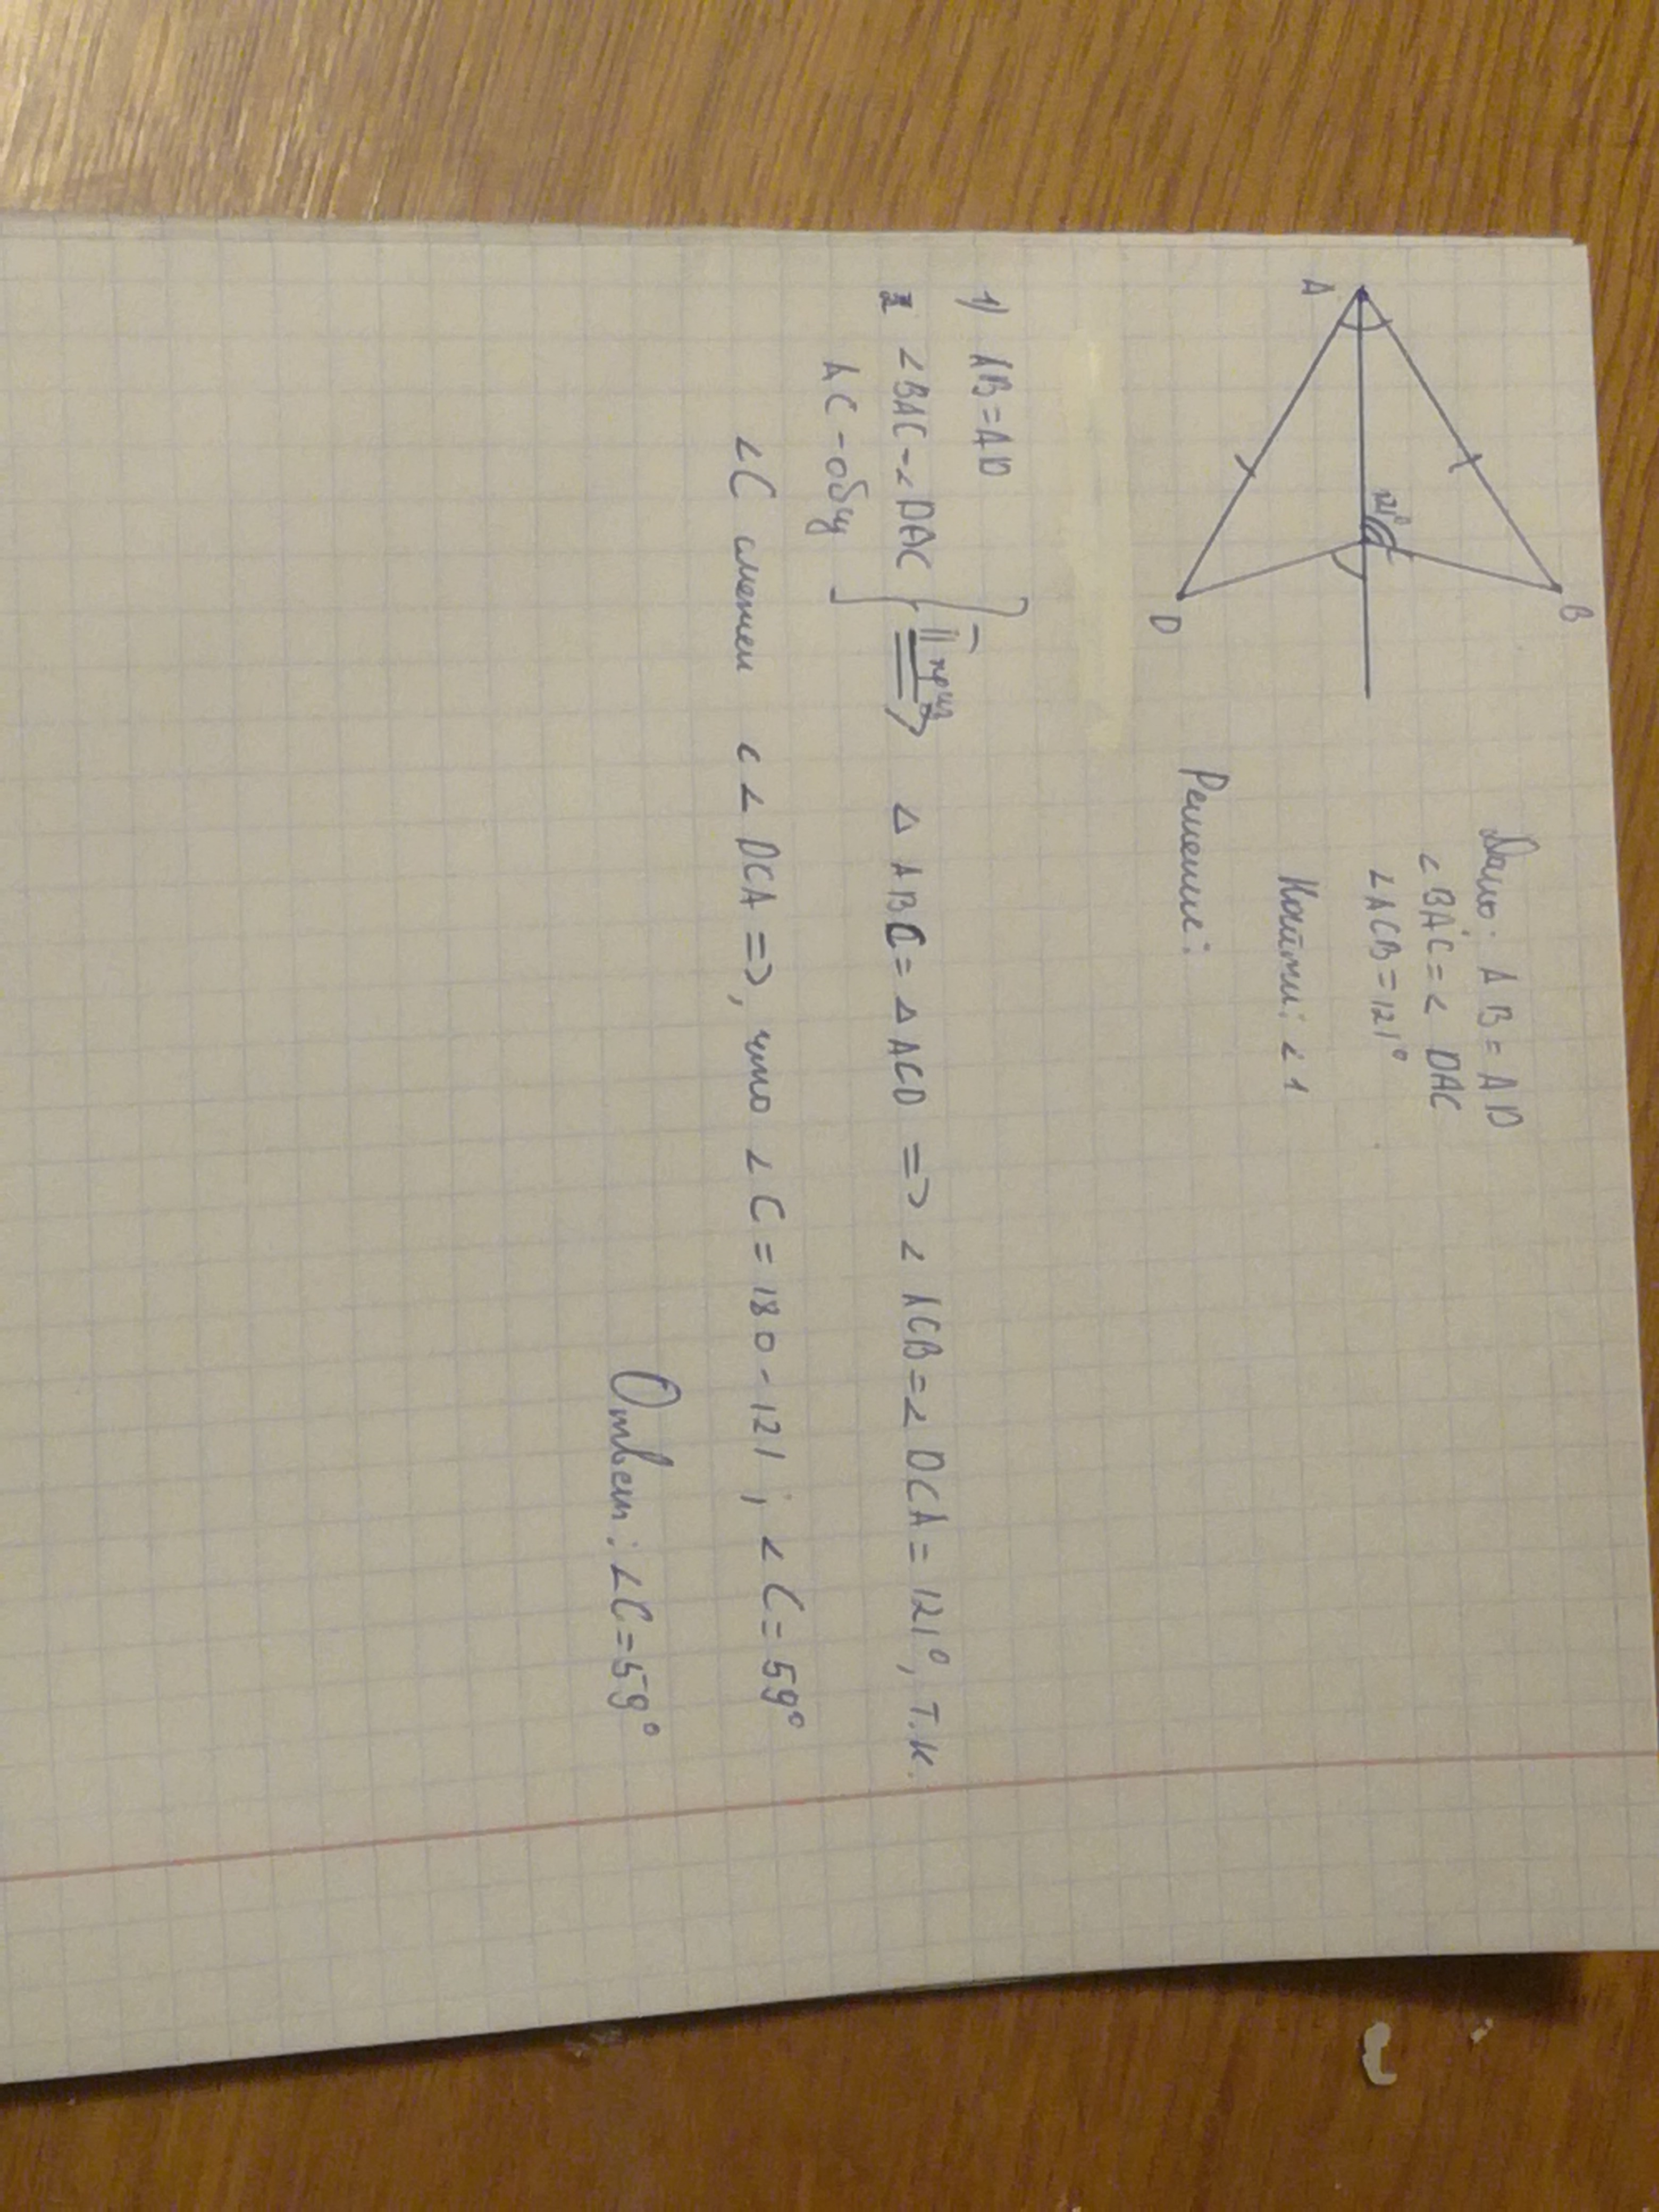 A
B
D
121°
Дано: AB = AD
∠BAC = ∠DAC
∠ACB = 121°
Найти: ∠1
Решение:
1) AB = AD
∠BAC - ∠DAC
AC - общ
II приз
Δ ABC = Δ ACD => ∠ ACB = ∠ DCA = 121°, т.к.
∠C смежен с ∠DCA =>, что ∠C = 180 - 121 ; ∠C = 59°
Ответ: ∠C = 59°